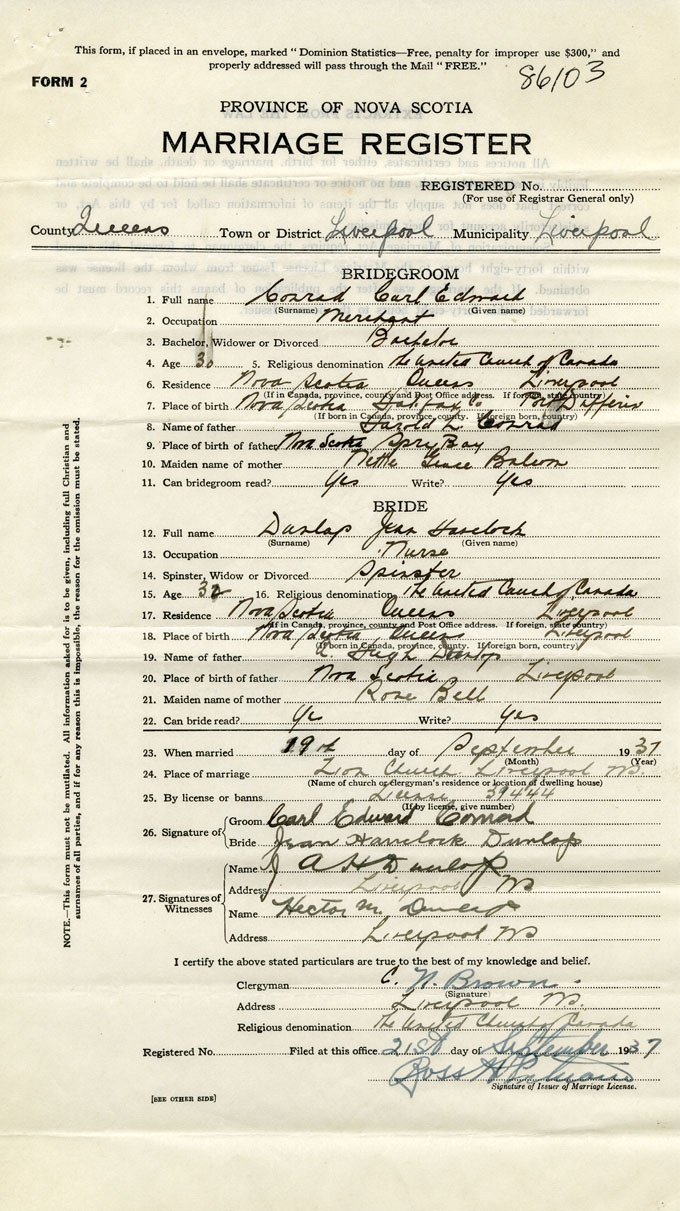 This form, if placed in an envelope, marked "Dominion Statistics—Free, penalty for improper use $300," and
properly addressed will pass through the Mail "FREE."
FORM 2
86103
PROVINCE OF NOVA SCOTIA
MARRIAGE REGISTER
REGISTERED No.
(For use of Registrar General only)
County Queens Town or District Liverpool Municipality Liverpool
BRIDEGROOM
1. Full name Conrad Carl Edward
(Surname) (Given name)
2. Occupation Merchant
3. Bachelor, Widower or Divorced Bachelor
4. Age 30 5. Religious denomination The United Church of Canada
6. Residence Nova Scotia Queens Liverpool
(If in Canada, province, county and Post Office address. If foreign, state country)
7. Place of birth Nova Scotia Halifax Co Port Dufferin
(If born in Canada, province, county. If foreign born, country)
8. Name of father Harold L. Conrad
9. Place of birth of father Nova Scotia Spry Bay
10. Maiden name of mother Nettie Grace Balcom
11. Can bridegroom read? Yes Write? Yes
BRIDE
12. Full name Dunlap Jean Havelock
(Surname) (Given name)
13. Occupation Nurse
14. Spinster, Widow or Divorced Spinster
15. Age 32 16. Religious denomination The United Church of Canada
17. Residence Nova Scotia Queens Liverpool
(If in Canada, province, county and Post Office address. If foreign, state country)
18. Place of birth Nova Scotia Queens Liverpool
(If born in Canada, province, county. If foreign born, country)
19. Name of father A. Hugh Dunlop
20. Place of birth of father Nova Scotia Liverpool
21. Maiden name of mother Rose Bell
22. Can bride read? Ye Write? Yes
23. When married 19th day of September 1937
(Month) (Year)
24. Place of marriage Zion Church Liverpool NS.
(Name of church or clergyman's residence or location of dwelling house)
25. By license or banns License 39444
(If by license, give number)
26. Signature of Groom Carl Edward Conrad
Bride Jean Havelock Dunlap
27. Signatures of Witnesses Name A H Dunlap
Address Liverpool NS
Name Hector M. Dunlap
Address Liverpool NS
I certify the above stated particulars are true to the best of my knowledge and belief.
Clergyman C. N. Brown.
(Signature)
Address Liverpool NS.
Religious denomination The United Church of Canada
Registered No. Filed at this office 21st day of September 1937
Ross
Signature of Issuer of Marriage License.
[SEE OTHER SIDE]
NOTE.—This form must not be mutilated. All information asked for is to be given, including full Christian and
surnames of all parties, and if for any reason this is impossible, the reason for the omission must be stated.